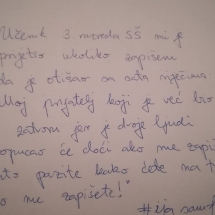 "Učenik 3 razreda SŠ mi je
prijetio ukoliko zapišem
da je otišao sa sata riječima
"Moj prijatelj koji je već bio
zatvoru jer je dvoje ljudi
opucao će doći ako me zapi
ato pazite kako ćete na t
ko me zapišete!"